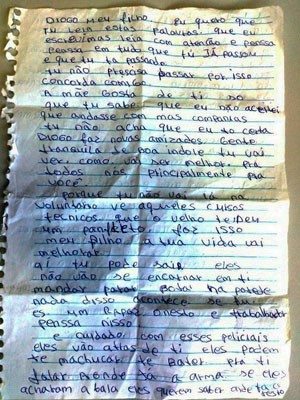 DIOGO meu filho eu quero que
tu leia estas palavras que eu
escrevi mas leia com atenção e penssa
penssa em tudo que tu já passou
e que tu ta passando
tu não precisa passar por isso
concorda comigo
A mãe gosta de ti so
que tu sabe que eu não aceitei
que andasse com mas companias
tu não acha que eu to certa
DIOGO faz novas amizades Gente
tranquila de boa indole tu vai
ver como vai ser melhor pra
todos nós principalmente pra
você
porque tu não vai la na
voluntario ve aqueles cursos
tecnicos que o velho te deu
um panfleto. faz isso
meu filho a tua vida vai
melhorar
ai tu pode sair eles
não vão se encarnar em ti
mandar parar bota na parede
nada disso acontece se tu
es um rapaz onesto e trabalhador
penssa nisso
e cuidado com esses policiais
eles vão atras de ti eles podem
se machucar de Bater pra ti
falar onde ta a arma se eles
acharam a bala eles querem saber onde ta o
resto